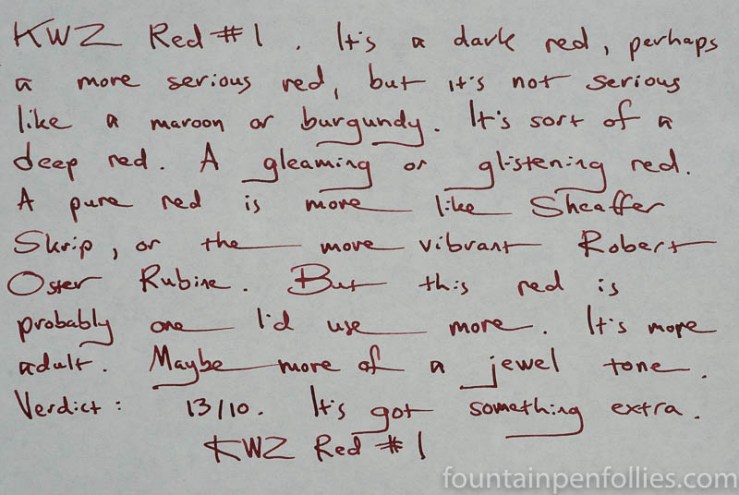 KWZ Red #1. It's a dark red, perhaps
a more serious red, but it's not serious
like a maroon or burgundy. It's sort of a
deep red. A gleaming or glistening red.
A pure red is more like Sheaffer
Skrip, or the more vibrant Robert
Oster Rubine. But this red is
probably one I'd use more. It's more
adult. Maybe more of a jewel tone.
Verdict: 13/10. It's got something extra.
KWZ Red #1
fountainpenfollies.com